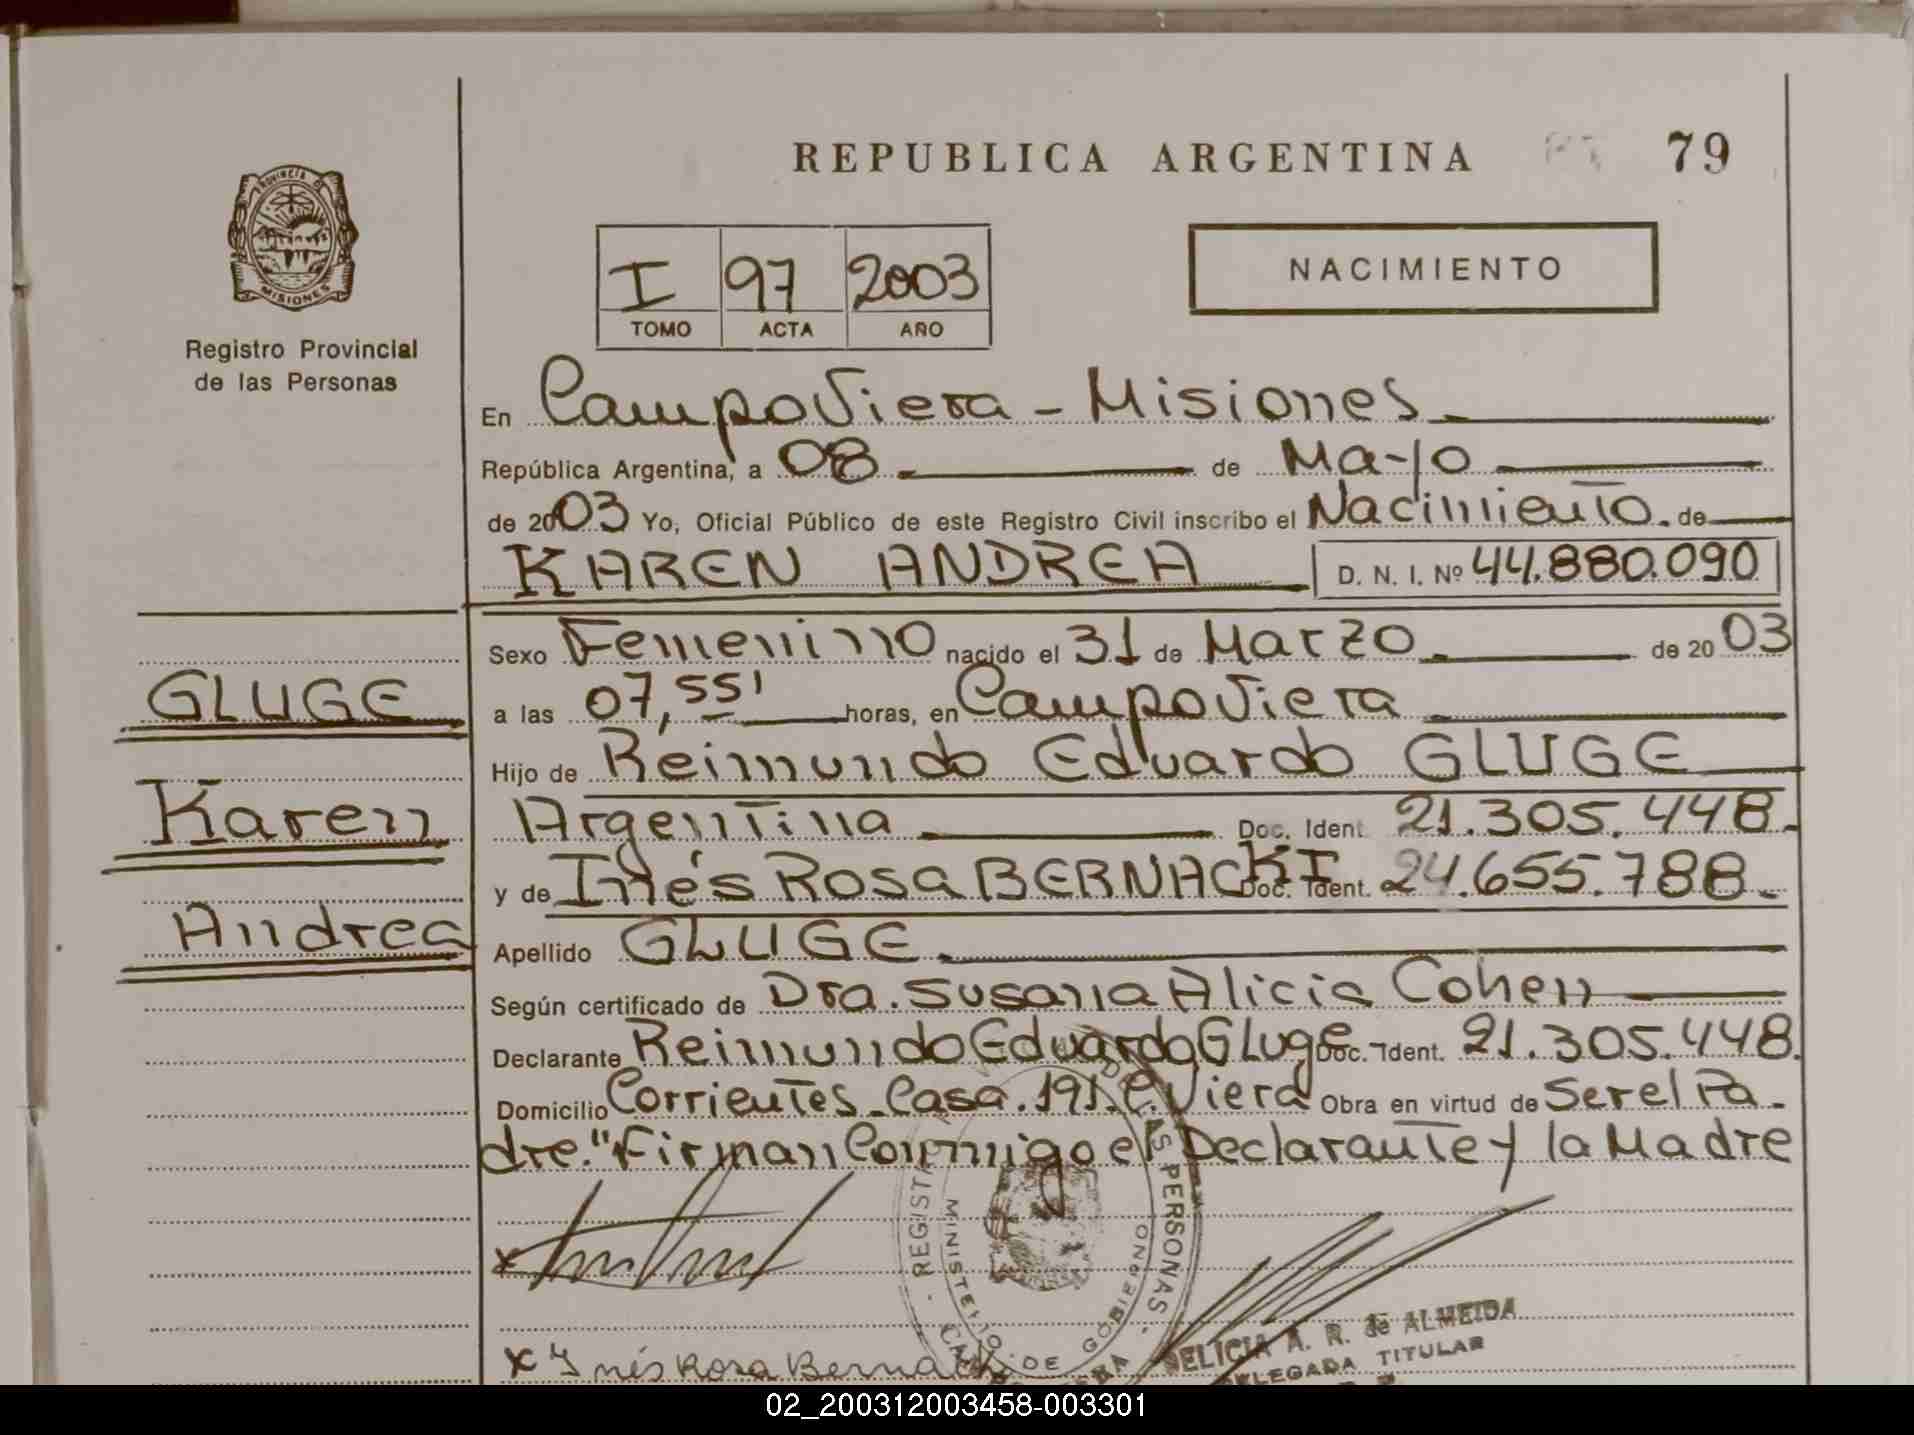 REPUBLICA ARGENTINA
79
PROVINCIA DE
MISIONES
Registro Provincial
de las Personas
I 97 2003
TOMO ACTA AÑO
NACIMIENTO
En Campo Viera - Misiones
República Argentina, a 08 de Mayo
de 2003 Yo, Oficial Público de este Registro Civil inscribo el Nacimiento. de
KAREN ANDREA D. N. I. Nº 44.880.090
GLUGE
Karen
Andrea
Sexo Femenino nacido el 31 de Marzo de 20 03
a las 07,55' horas, en Campo Viera
Hijo de Reimundo Eduardo GLUGE
Argentina Doc. Ident. 21.305.448.
y de Inés Rosa BERNACKI Doc. Ident. 24.655.788.
Apellido GLUGE
Según certificado de Dra. Susana Alicia Cohen
Declarante Reimundo Eduardo Gluge Doc. Ident. 21.305.448.
Domicilio Corrientes_Casa.191.C.Viera Obra en virtud de Ser el Pa-
dre." Firman Conmigo el Declarante y la Madre
REGISTR DE LAS PERSONAS
MINISTERIO DE GOBIERNO
x Inés Rosa Bernacki
DELICIA A. R. de ALMEIDA
DELEGADA TITULAR
02_200312003458-003301